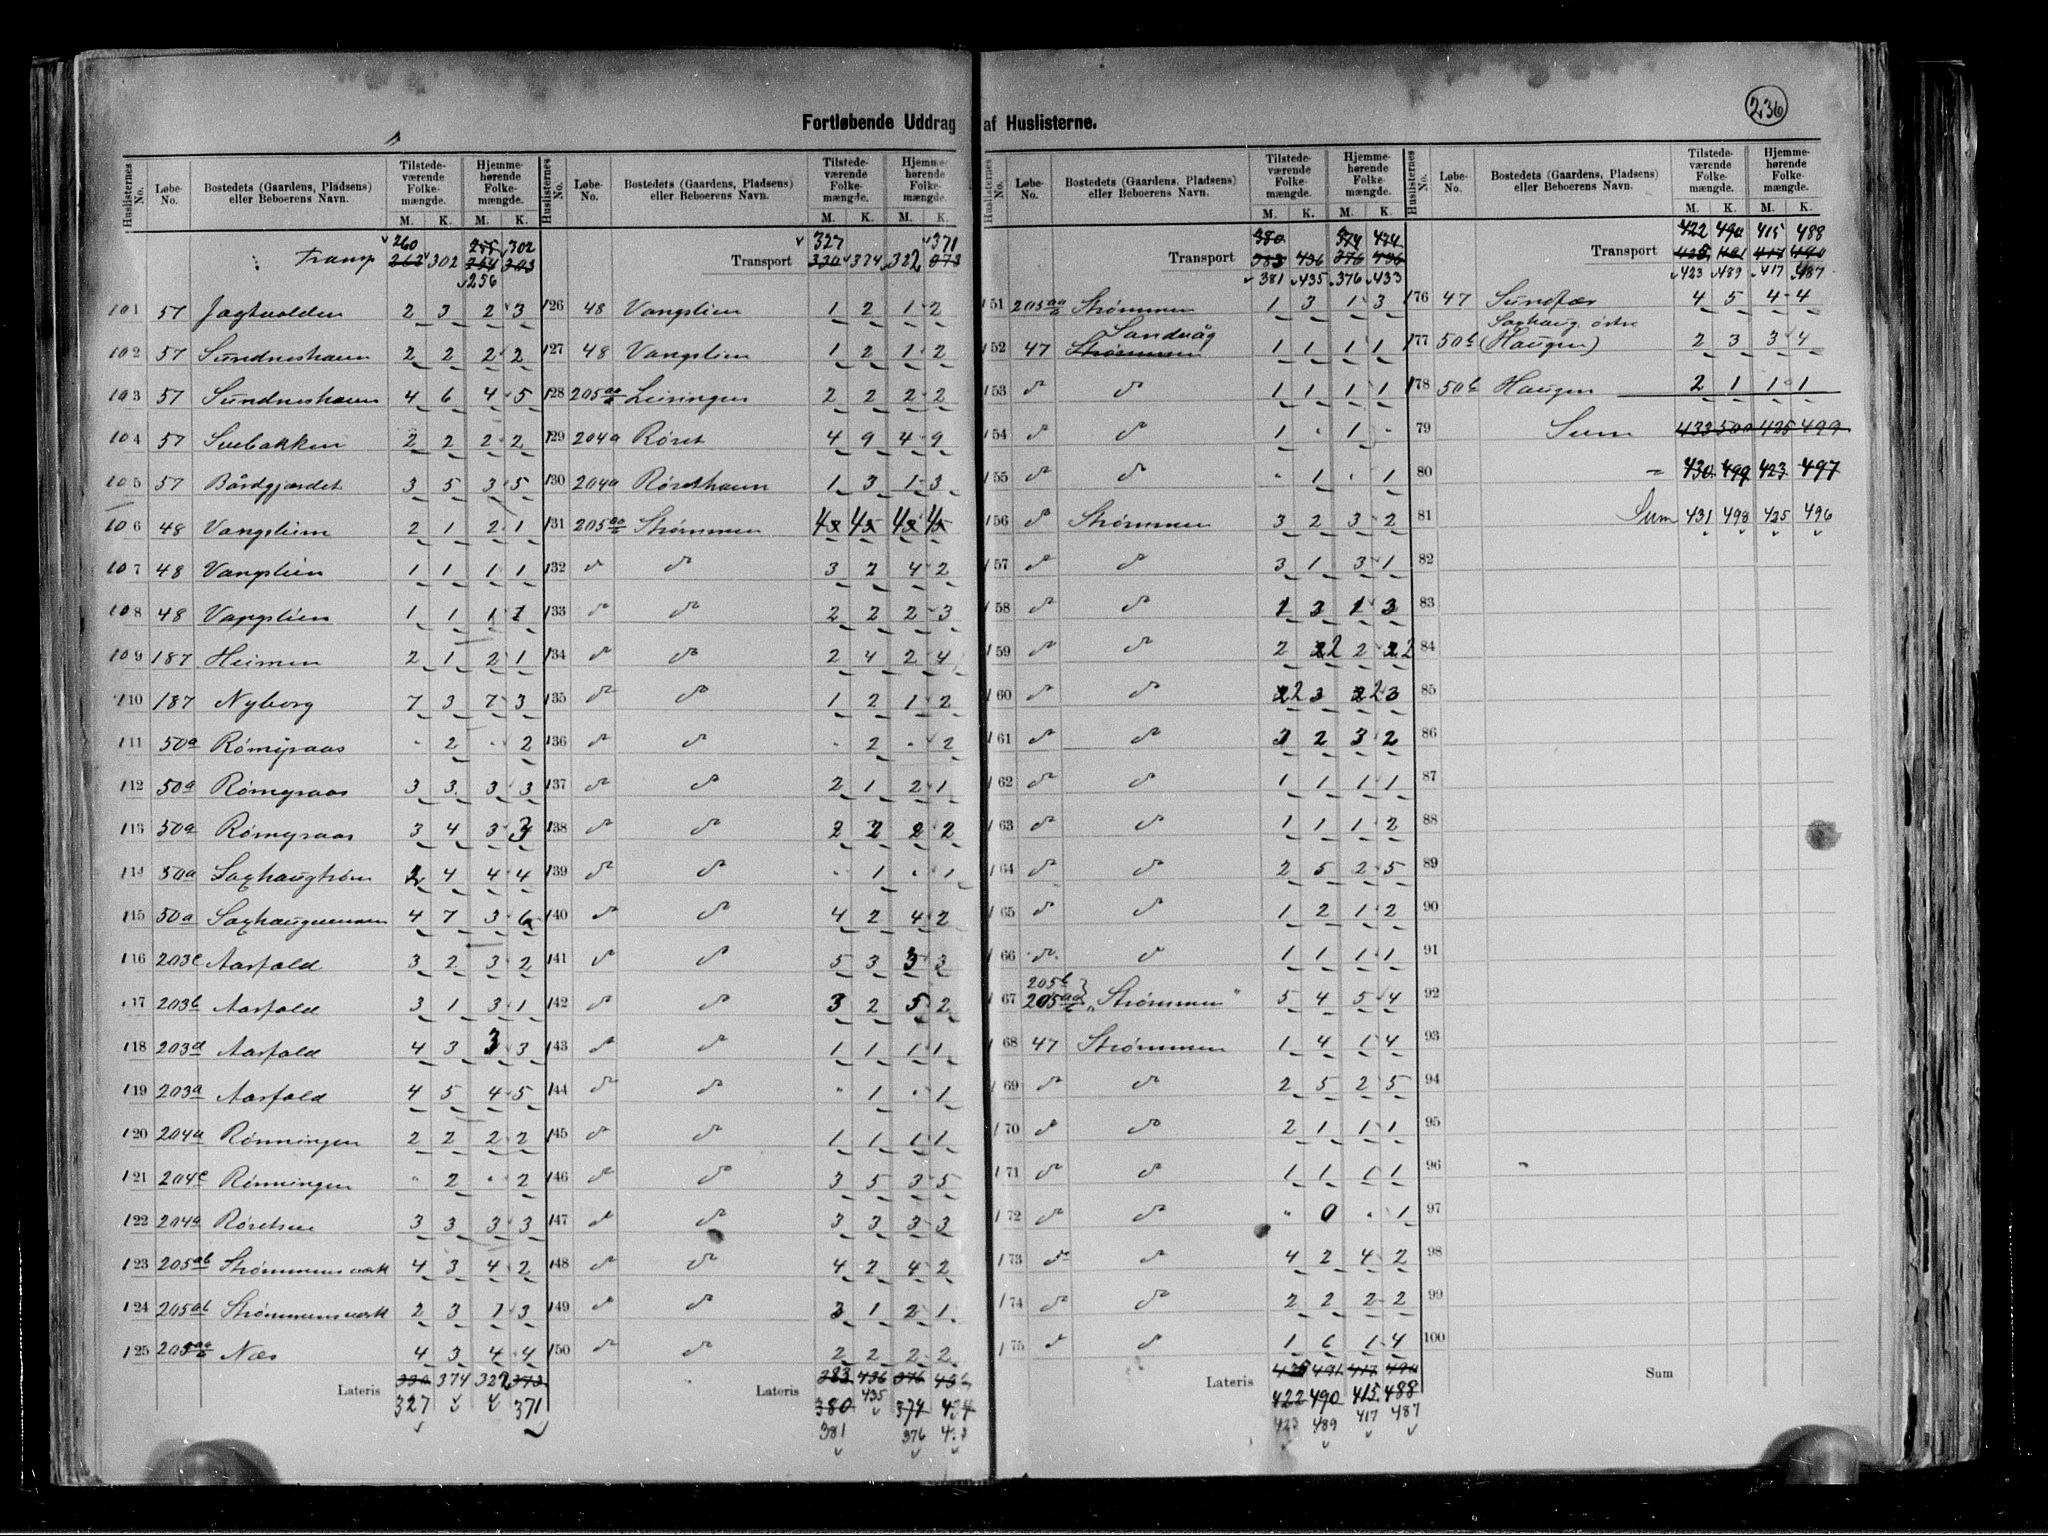 236
Fortløbende Uddrag af Huslisterne.
Huslisternes No. Løbe-No. Bostedets (Gaardens, Pladsens) eller Beboerens Navn. Tilstedeværende Folkemængde. M. K. Hjemmehørende Folkemængde. M. K.
260 255 302
Transp 262 302 254 303
256
101 57 Jagtvolden 2 3 2 3
102 57 Sundneshavn 2 2 2 2
103 57 Sundneshavn 4 6 4 5
104 57 Svebakken 2 2 2 2
105 57 Bårdgjærdet 3 5 3 5
106 48 Vangslien 2 1 2 1
107 48 Vangslien 1 1 1 1
108 48 Vangslien 1 1 1 1
109 187 Heimen 2 1 2 1
110 187 Nyborg 7 3 7 3
111 50a Rømgraas " 2 " 2
112 50a Rømgraas 3 3 3 3
113 50a Rømgraas 3 4 3 3
114 50a 2 4 4 4
115 50a 4 7 3 6
116 203c Aasfald 3 2 3 2
117 203b Aasfald 3 1 3 1
118 203d Aasfald 4 3 3 3
119 203a Aasfald 4 5 4 5
120 204a Rønningen 2 2 2 2
121 204c Rønningen " 2 " 2
122 204a 3 3 3 3
123 205ab Strømmensværk 4 3 4 2
124 205ab Strømmensværk 2 3 1 3
125 205aa Næs 4 3 4 4
Lateris 330 374 322 373
327 371
Huslisternes No. Løbe-No. Bostedets (Gaardens, Pladsens) eller Beboerens Navn. Tilstedeværende Folkemængde. M. K. Hjemmehørende Folkemængde. M. K.
327 371
Transport 330 374 322 373
126 48 Vangslien 1 2 1 2
127 48 Vangslien 1 2 1 2
128 205aa Leiringen 2 2 2 2
129 204a Røret 4 9 4 9
130 204a Rørethaun 1 3 1 3
131 205aa Strømmen 4 4 4 4
132 do do 3 2 4 2
133 do do 2 2 2 3
134 do do 2 4 2 4
135 do do 1 2 1 2
136 do do " 2 " 2
137 do do 2 1 2 1
138 do do 2 2 2 2
139 do do " 1 " 1
140 do do 4 2 4 2
141 do do 5 3 3 3
142 do do 3 2 5 2
143 do do 1 1 1 1
144 do do " 1 " 1
145 do do 1 1 1 1
146 do do 3 5 3 5
147 do do 3 3 3 3
148 do do 4 2 4 2
149 do do 3 1 2 1
150 do do 2 2 2 2
Lateris 383 436 376 436
380 435 374 434
381 376
Huslisternes No. Løbe-No. Bostedets (Gaardens, Pladsens) eller Beboerens Navn. Tilstedeværende Folkemængde. M. K. Hjemmehørende Folkemængde. M. K.
380 374 434
Transport 383 436 376 436
381 435 376 433
151 205aa Strømmen 1 3 1 3
Sandvåg
152 47 Strømmen 1 1 1 1
153 do do 1 1 1 1
154 do do 1 " 1 "
155 do do " 1 " 1
156 do Strømmen 3 2 3 2
157 do do 3 1 3 1
158 do do 1 3 1 3
159 do do 2 2 2 2
160 do do 2 3 2 3
161 do do 3 2 3 2
162 do do 1 1 1 1
163 do do 1 1 1 2
164 do do 2 5 2 5
165 do do 1 2 1 2
166 do do 1 1 1 1
205b
167 205aa „Strømmen" 5 4 5 4
168 47 Strømmen 1 4 1 4
169 do do 2 5 2 5
170 do do 2 1 1 1
171 do do 1 1 1 1
172 do do " 0 " 1
173 do do 4 2 4 2
174 do do 2 2 2 2
175 do do 1 6 1 4
Lateris 425 491 417 490
422 490 415 488
423 489 417 487
Huslisternes No. Løbe-No. Bostedets (Gaardens, Pladsens) eller Beboerens Navn. Tilstedeværende Folkemængde. M. K. Hjemmehørende Folkemængde. M. K.
422 490 415 488
Transport 425 491 417 490
423 489 417 487
176 47 Sundfær 4 5 4 4
Saxhaug østre
177 50b (Haugen) 2 3 3 4
178 50b Haugen 2 1 1 1
79 Sum 433 500 425 499
80 = 430 499 423 497
81 Sum 431 498 425 496
82
83
84
85
86
87
88
89
90
91
92
93
94
95
96
97
98
99
100
Sum